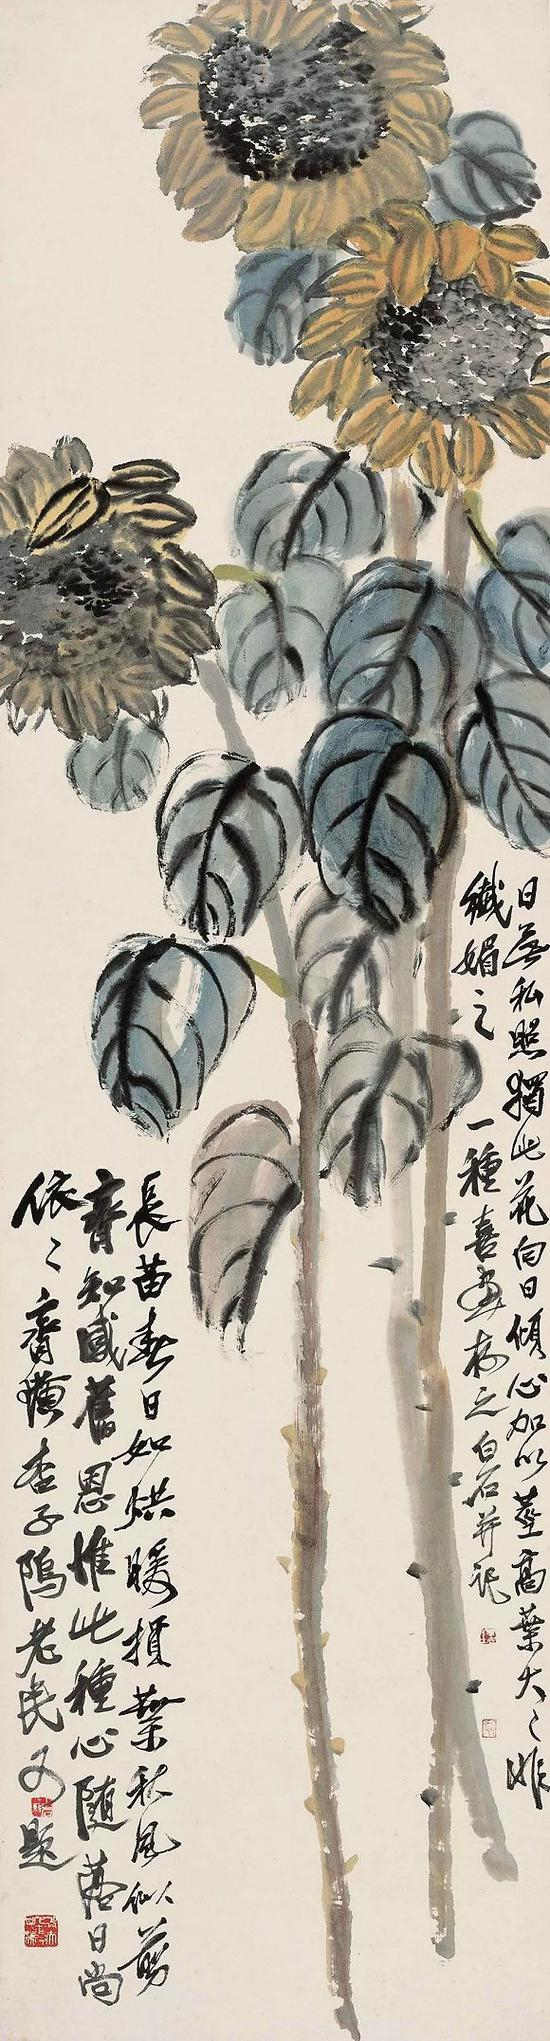 日無私照獨此花向日傾心加以莖高葉大之非
纖媚之一種喜畫存之白石并記
長苗春日如烘暖損葉秋風似剪
齊知感舊恩惟此種心隨落日尚
依之齊璜杏子隖老民又題